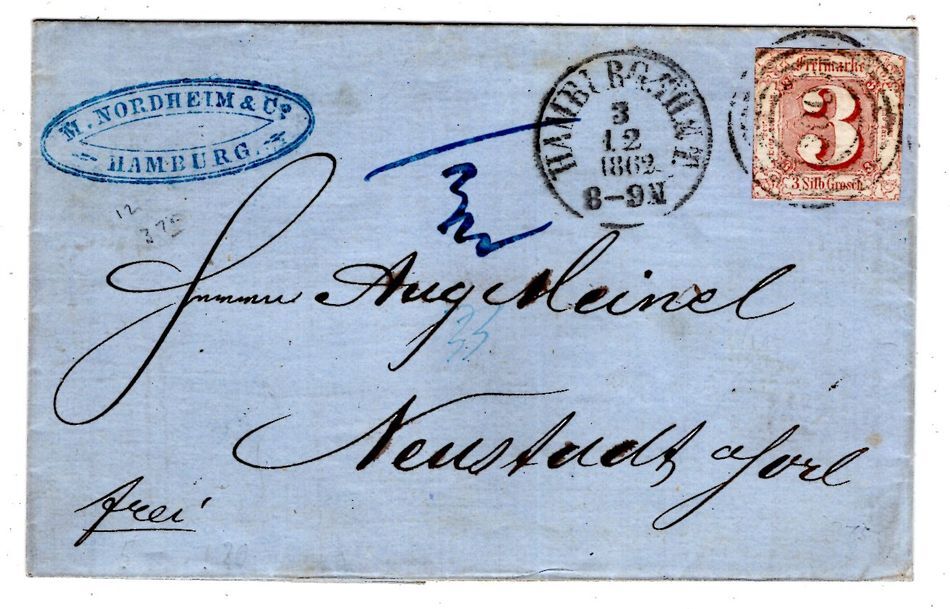 M. NORDHEIM & Co.
HAMBURG.
HAMBURG.TH.&T.
3
12
1862
8-9N
Freimarke
3
3 Silb Grosch.
12
Herrn Aug Meinel
Neustadt a/orl
frei